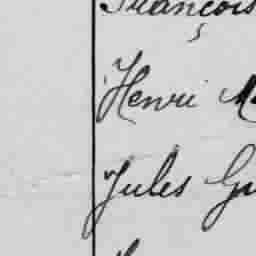 François
Henri
Jules